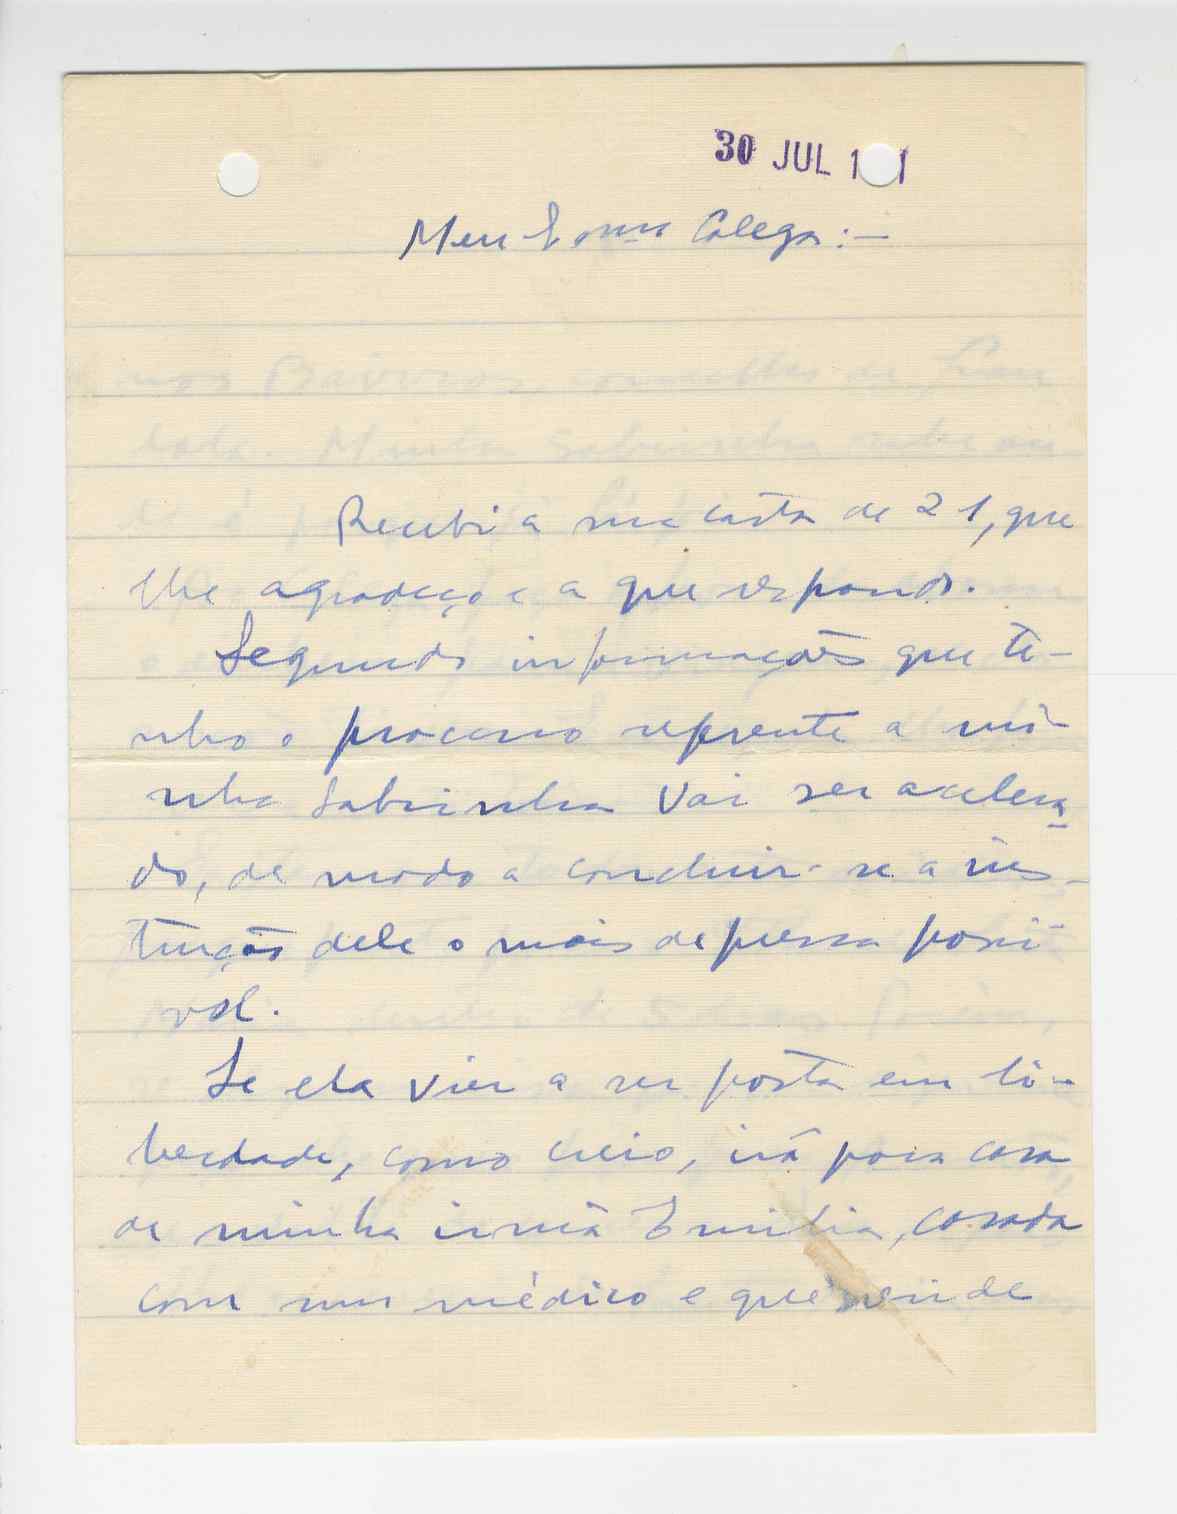 30 JUL 1 1
Meu Exmo Colega:—
Recebi a sua carta de 21, que
lhe agradeço e a que respondo.
Segundo informações que te-
nho o processo referente a mi-
nha sobrinha vai ser acelera-
do, de modo a concluir-se a ins-
trução dele o mais depressa possi-
vel.
Se ela vier a ser posta em li-
berdade, como creio, irá para casa
de minha irmã Emilia, casada
com um médico e que reside